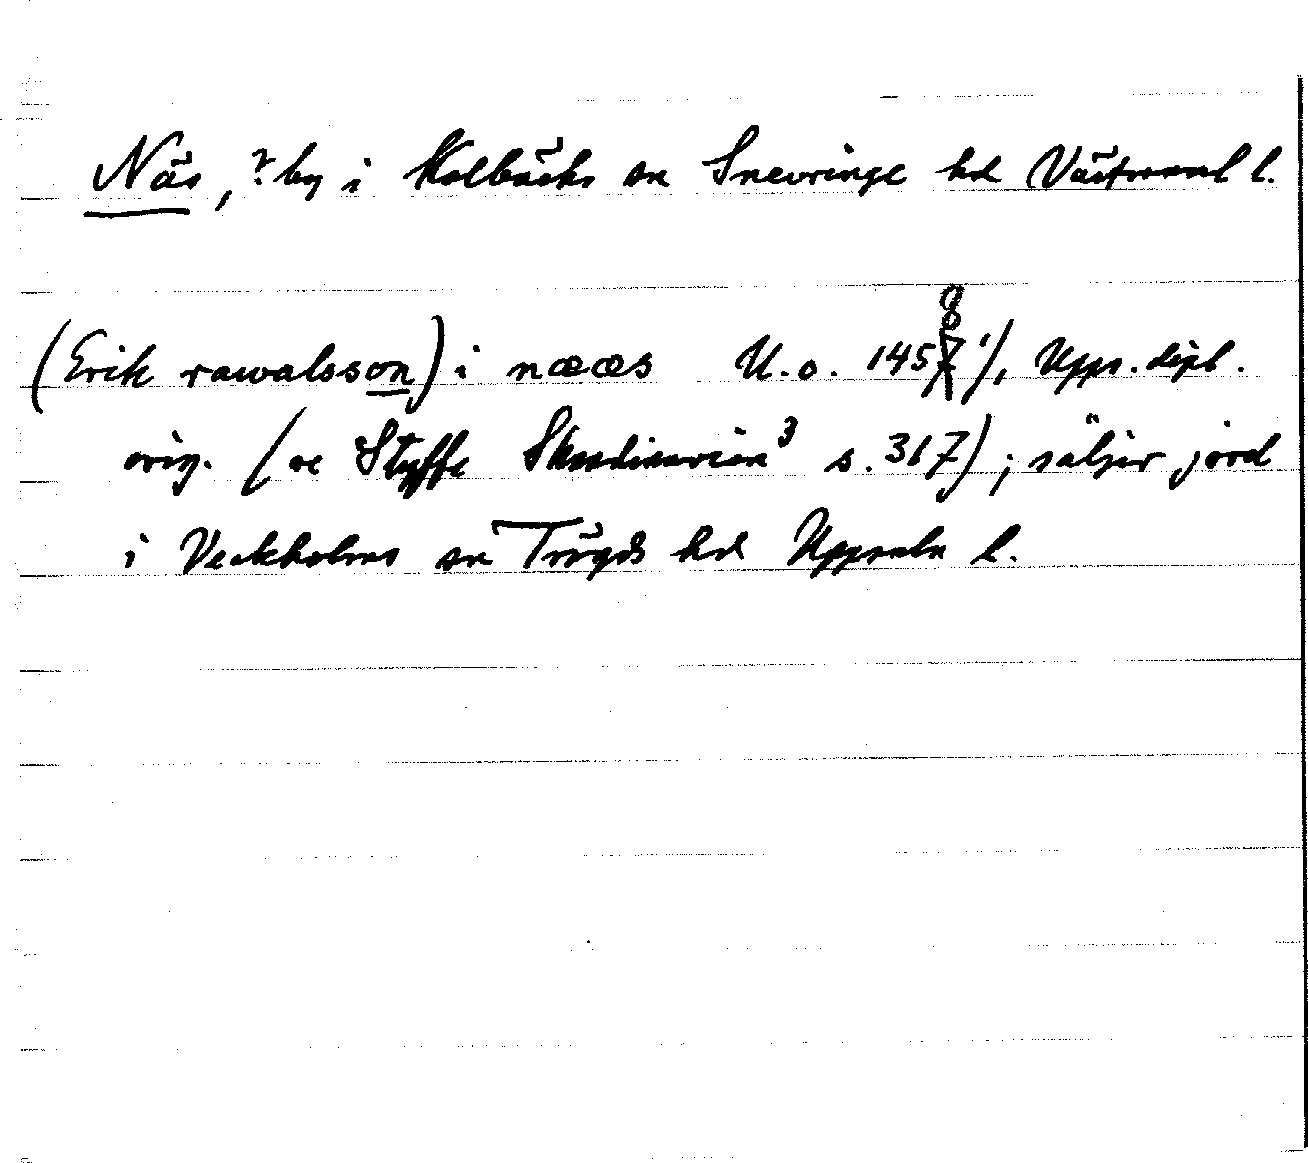 Näs, ? by i Kolbäcks sn Snevringe hd Västmanl l.
(Erik rawalsson) i nææs U.o. 1458 1/1, Upps. dipl.
orig. (se Styffe Skandinavien³ s. 317); säljer jord
i Veckholms sn Trögds hd Uppsala l.